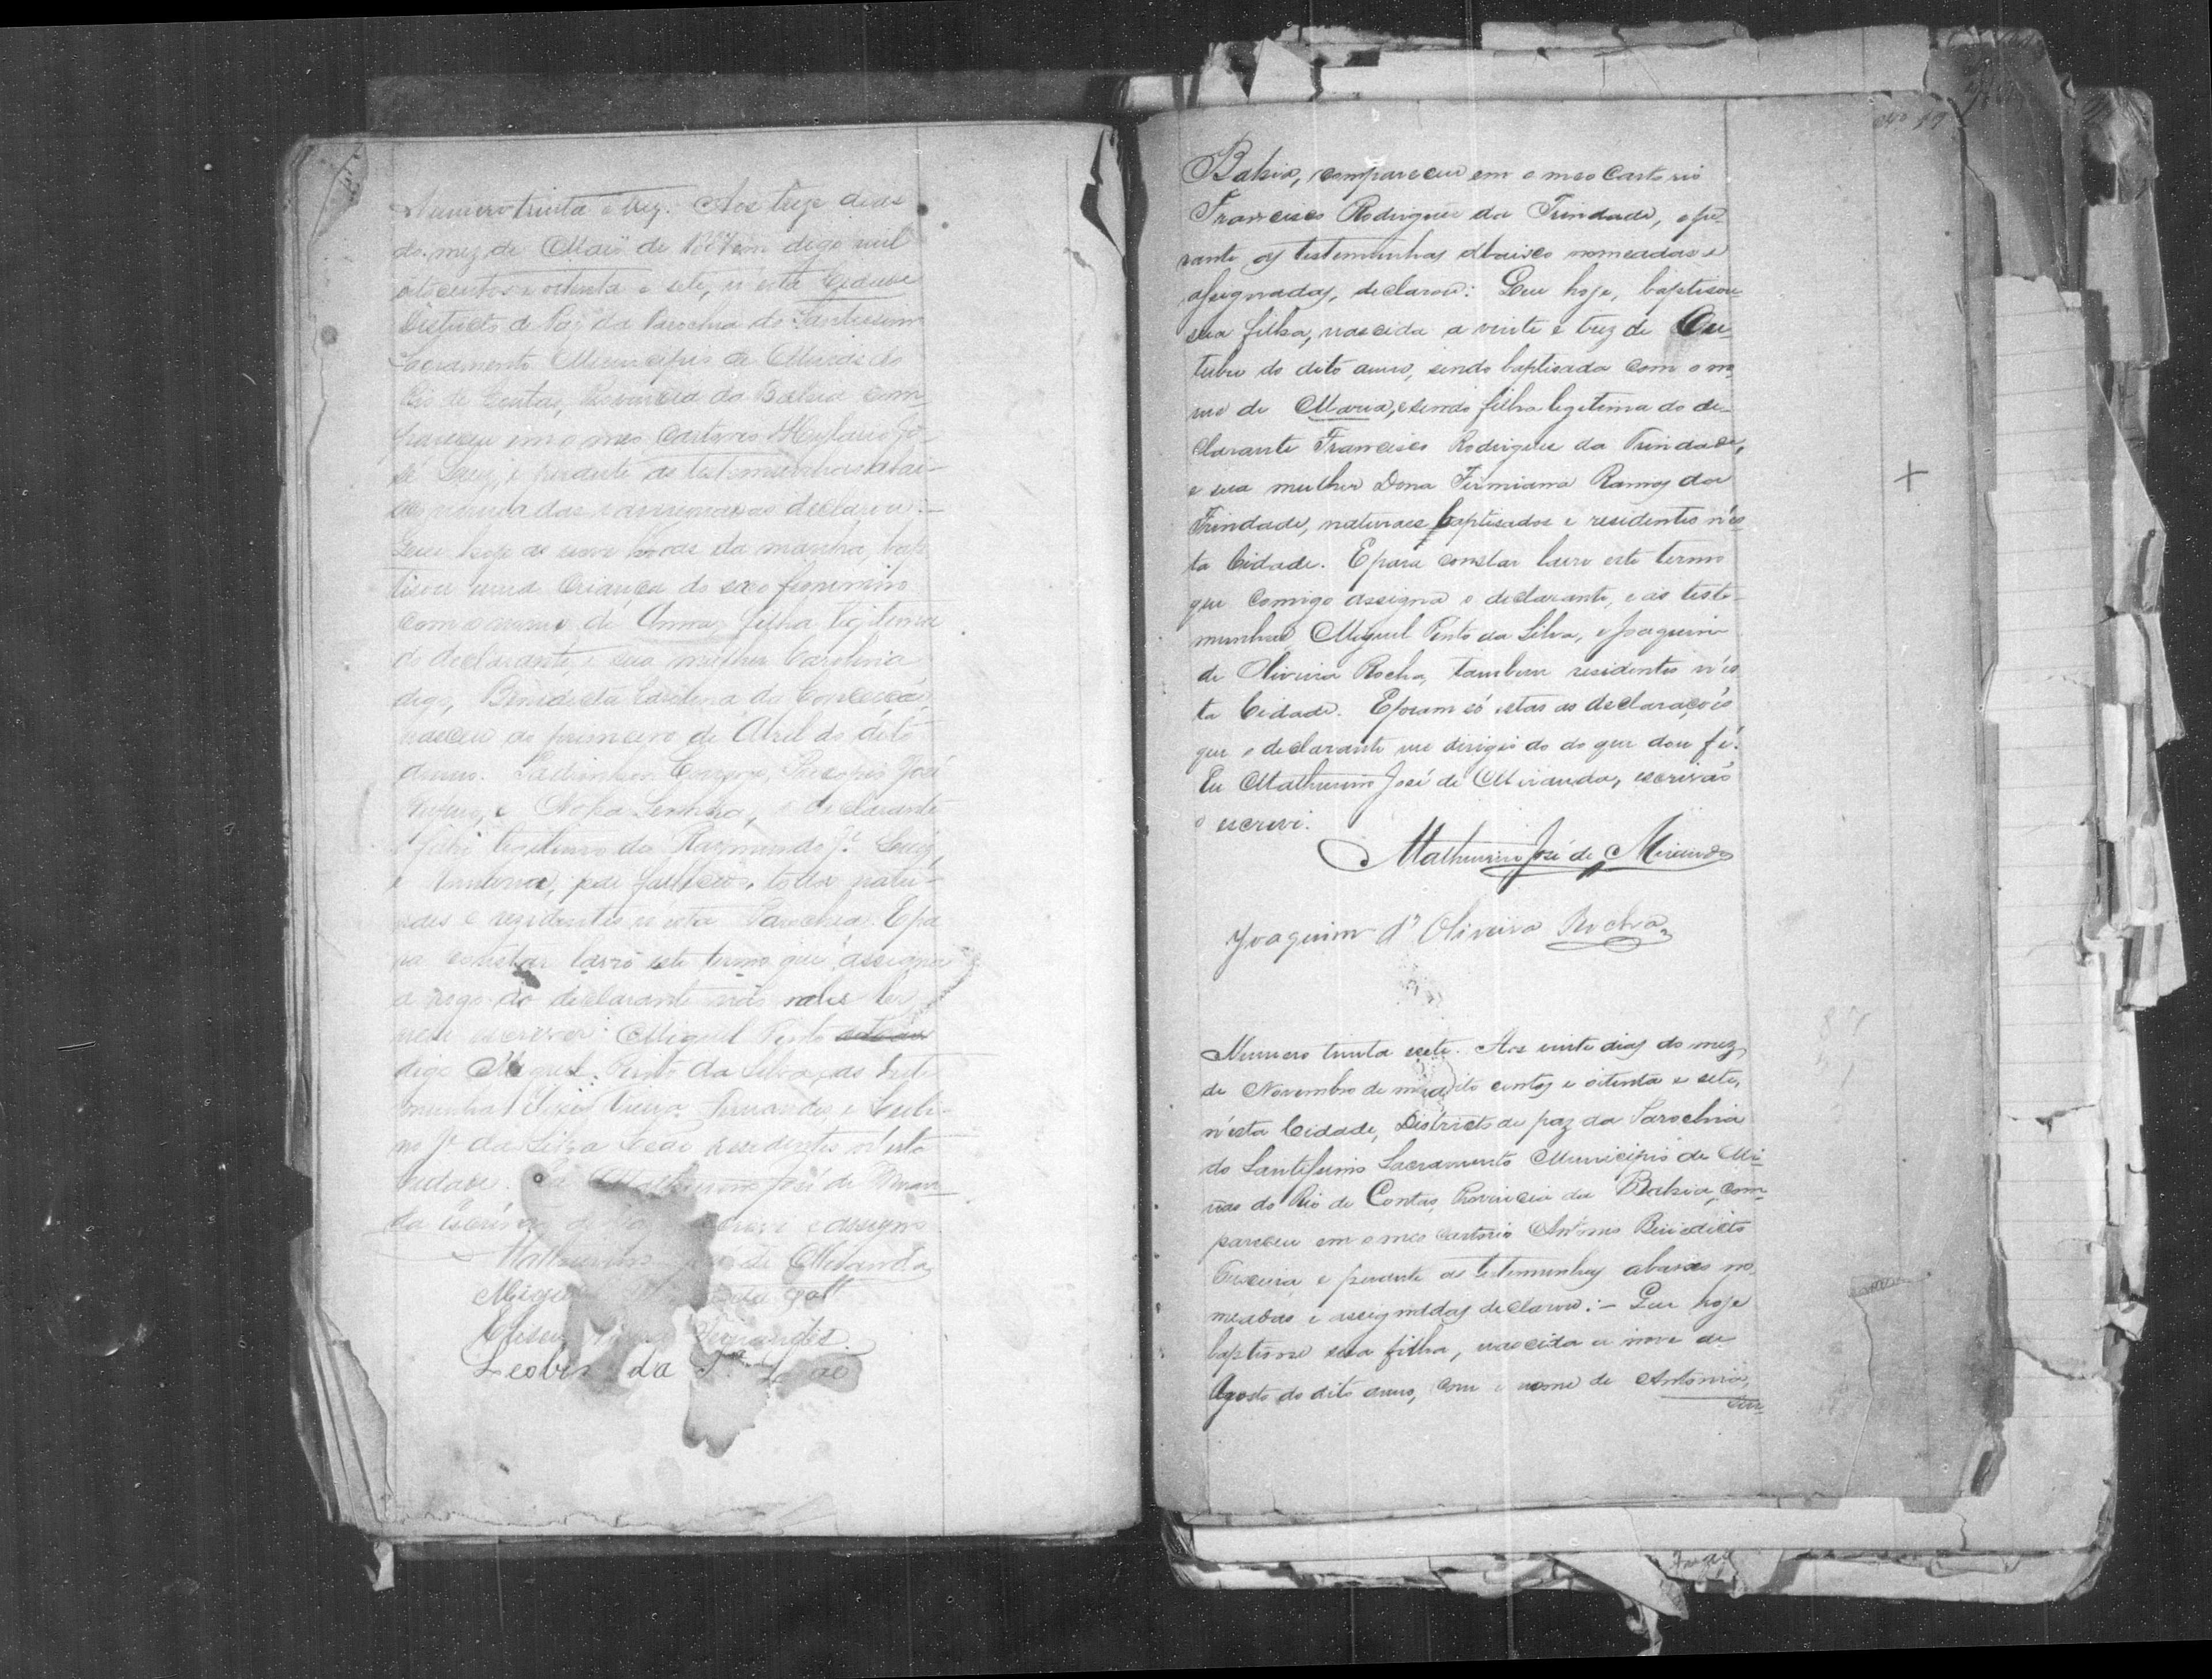 Numero trinta e trez. Aos treze dias
do mez de Maio de digo mil
oitocentos e oitenta e sete, n'esta Cidade
Districto de Paz da Parochia do Santissimo
Sacramento Municipio de Minas do
Rio de Contas, Provincia da Bahia com-
pareceu em o meo Cartorio Hylario Jo-
sé e perante as testemunhas abai-
xo nomeadas e assignadas declarou:-
Que hoje as nove horas da manha, bap-
tisou uma Criança do sexo feminino
com o nome de Anna, filha legitima
do declarante, e sua mulher Carolina
digo, Benedicta Carolina da Conceicão,
nasceu ao primeiro de Abril do dito
anno. Padrinhos José
e Nossa Senhora, o declarante
é filho legitimo de Raymundo Je.
e todos natu-
raes e residentes n'esta Parochia. E pa-
ra constar lavro este termo que assigna
a rogo do declarante não saber ler
nem escrever: Miguel Pinto
digo Miguel Pinto da Silva, as teste-
munhas Fernandes, e
no Je. da Silva Leão residentes n'esta
Cidade. Eu Mathurino José de Miran-
da Escrivão de escrevi e assigno
Mathurino José de Miranda
Miguel
Eliseu Fernandes
da Sa. Leão
Bahia, compareceu em o meo Cartorio
Francisco Rodrigues da Trindade, e pe-
rante as testemunhas abaixo nomeadas e
assignadas, declarou: Que hoje, baptisou
sua filha, nascida a vinte e trez de Ou-
tubro do dito anno, sendo baptisada com o no-
me de Maria, e sendo filha legitima do de-
clarante Francisco Rodrigues da Trindade,
e sua mulher Dona Firmiana Ramos da
Trindade, naturaes baptisados e residentes n'es-
ta Cidade. E para constar lavro este termo
que comigo assigna o declarante, e as teste-
munhas Miguel Pinto da Silva, e Joaquim
de Oliveira Rocha, tambem residentes n'es-
ta Cidade. E foram só estas as declarações
que o declarante me dirigio do que dou fé.
Eu Mathurino José de Miranda, escrivão
o escrevi.
Mathurino José de Miranda
Joaquim d'Oliveira Rocha
Numero trinta e sete. Aos vinte dias do mez
de Novembro de mil oito centos e oitenta e sete,
n'esta Cidade, Districto de paz da Parochia
do Santissimo Sacramento Municipio de Mi-
nas do Rio de Contas, Provincia da Bahia, com-
pareceu em o meo Cartorio Antonio Benedicto
Teixeira e perante as testemunhas abaixo no-
meadas e assignadas declarou:- Que hoje
baptisou sua filha, nascida a nove de
Agosto do dito anno, com o nome de Antonia,